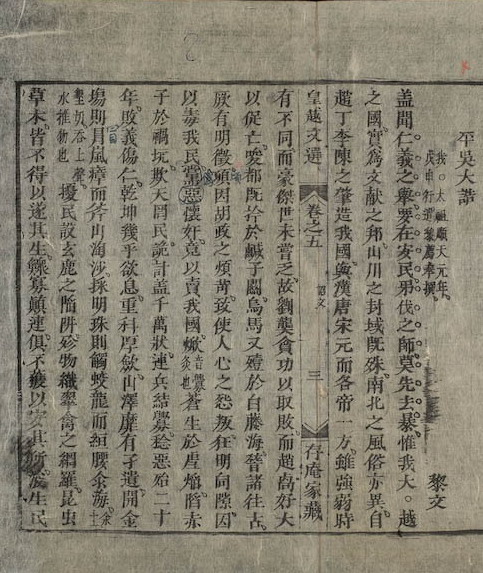 平吳大誥
我。太祖順天元年。
戊申行遣黎薦奉撰。
黎文
蓋聞仁義之舉要在安民弔伐之師莫先去暴惟我大。越
之國實爲文献之邦山川之封域既殊南北之風俗亦異自
趙丁李陳之肇造我國與漢唐宋元而各帝一方雖強弱時
皇越文選 卷之五 詔文 三 存庵家藏
有不同而豪傑世未嘗乏故劉龔貪功以取敗而趙卨好大
以促亡唆都既拾於鹹子關烏馬又殪於白藤海諸往古
厥有明徵頃因胡政之煩苛致使人心之怨叛狂明伺隙因
以毒我民黨惡懷奸竟以賣我國蒼生於虐熖陷赤
子於禍坑欺天罔民詭計盖千萬狀連兵結釁稔惡殆二十
年敗義傷仁乾坤幾乎欲息重科厚歛山澤靡有孑遺開金
塲則冒嵐瘴而斧山淘沙採明珠則觸蛟龍而絙腰汆海汆土
墾切吞上聲水推物也擾民設玄鹿之陷阱殄物織翠禽之網羅昆虫
草木皆不得以遂其生鰥寡顛連俱不獲以安其所浚生民